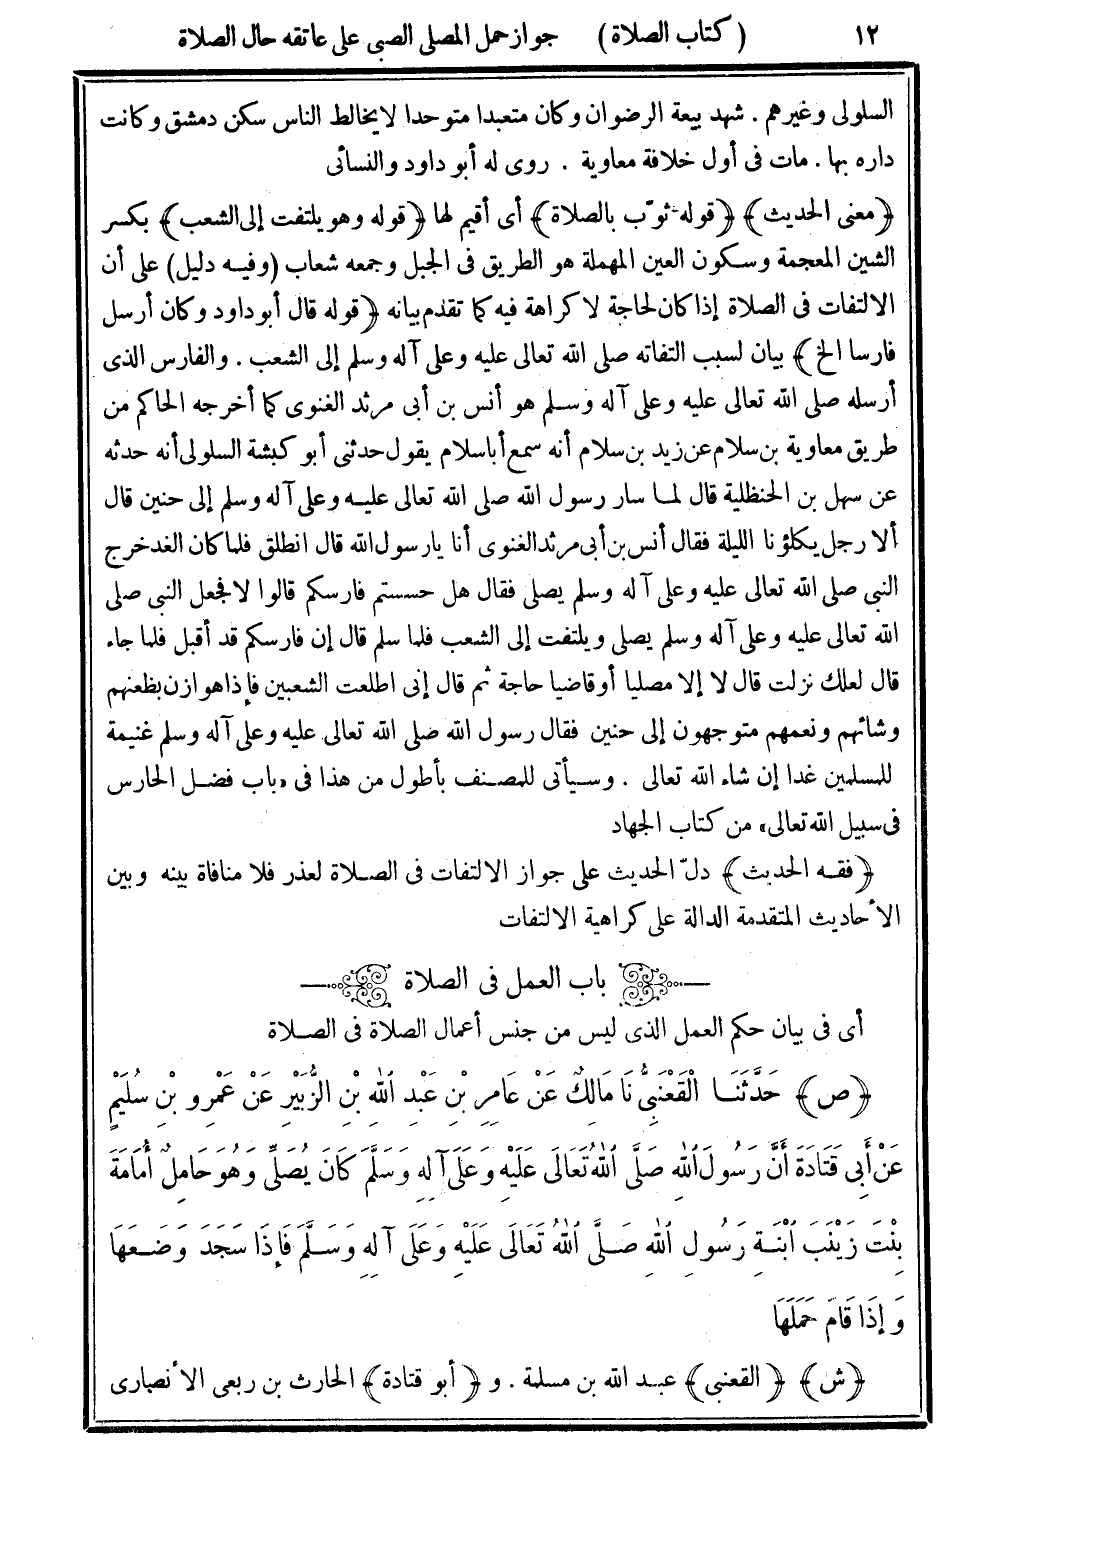 ١٢ ( كتاب الصلاة ) جواز حمل المصلى الصبى على عاتقه حال الصلاة
السلولى وغيرهم . شهد بيعة الرضوان وكان متعبدا متوحدا لايخالط الناس سكن دمشق وكانت
داره بها . مات فى أول خلافة معاوية . روى له أبو داود والنسائى
﴿معنى الحديث﴾ ﴿قوله ثوّب بالصلاة﴾ أى أقيم لها ﴿قوله وهو يلتفت إلى الشعب﴾ بكسر
الشين المعجمة وسكون العين المهملة هو الطريق فى الجبل وجمعه شعاب (وفيه دليل) على أن
الالتفات فى الصلاة إذا كان لحاجة لا كراهة فيه كما تقدم بيانه ﴿قوله قال أبو داود وكان أرسل
فارسا الخ﴾ بيان لسبب التفاته صلى الله تعالى عليه وعلى آله وسلم إلى الشعب . والفارس الذى
أرسله صلى الله تعالى عليه وعلى آله وسلم هو أنس بن أبى مرثد الغنوى كما أخرجه الحاكم من
طريق معاوية بن سلام عن زيد بن سلام أنه سمع أبا سلام يقول حدثنى أبو كبشة السلولى أنه حدثه
عن سهل بن الحنظلية قال لما سار رسول الله صلى الله تعالى عليه وعلى آله وسلم إلى حنين قال
ألا رجل يكلؤنا الليلة فقال أنس بن أبى مرثد الغنوى أنا يارسول الله قال انطلق فلما كان الغد خرج
النبى صلى الله تعالى عليه وعلى آله وسلم يصلى فقال هل حسستم فارسكم قالوا لا فجعل النبى صلى
الله تعالى عليه وعلى آله وسلم يصلى ويلتفت إلى الشعب فلما سلم قال إن فارسكم قد أقبل فلما جاء
قال لعلك نزلت قال لا إلا مصليا أو قاضيا حاجة ثم قال إنى اطلعت الشعبين فإذا هوازن بظعنهم
وشائهم ونعمهم متوجهون إلى حنين فقال رسول الله صلى الله تعالى عليه وعلى آله وسلم غنيمة
للمسلمين غدا إن شاء الله تعالى . وسيأتى للمصنف بأطول من هذا فى «باب فضل الحارس
فى سبيل الله تعالى» من كتاب الجهاد
﴿فقه الحديث﴾ دلّ الحديث على جواز الالتفات فى الصلاة لعذر فلا منافاة بينه وبين
الأحاديث المتقدمة الدالة على كراهية الالتفات
باب العمل فى الصلاة
أى فى بيان حكم العمل الذى ليس من جنس أعمال الصلاة فى الصلاة
﴿ص﴾ حَدَّثَنَا الْقَعْنَبِىُّ نَا مَالِكٌ عَنْ عَامِرِ بْنِ عَبْدِ اللهِ بْنِ الزُّبَيْرِ عَنْ عَمْرِو بْنِ سُلَيْمٍ
عَنْ أَبِى قَتَادَةَ أَنَّ رَسُولَ اللهِ صَلَّى اللهُ تَعَالَى عَلَيْهِ وَعَلَى آلِهِ وَسَلَّمَ كَانَ يُصَلِّى وَهُوَ حَامِلٌ أُمَامَةَ
بِنْتَ زَيْنَبَ ابْنَةِ رَسُولِ اللهِ صَلَّى اللهُ تَعَالَى عَلَيْهِ وَعَلَى آلِهِ وَسَلَّمَ فَإِذَا سَجَدَ وَضَعَهَا
وَإِذَا قَامَ حَمَلَهَا
﴿ش﴾ ﴿القعنبى﴾ عبد الله بن مسلمة . و ﴿أبو قتادة﴾ الحارث بن ربعى الأنصارى